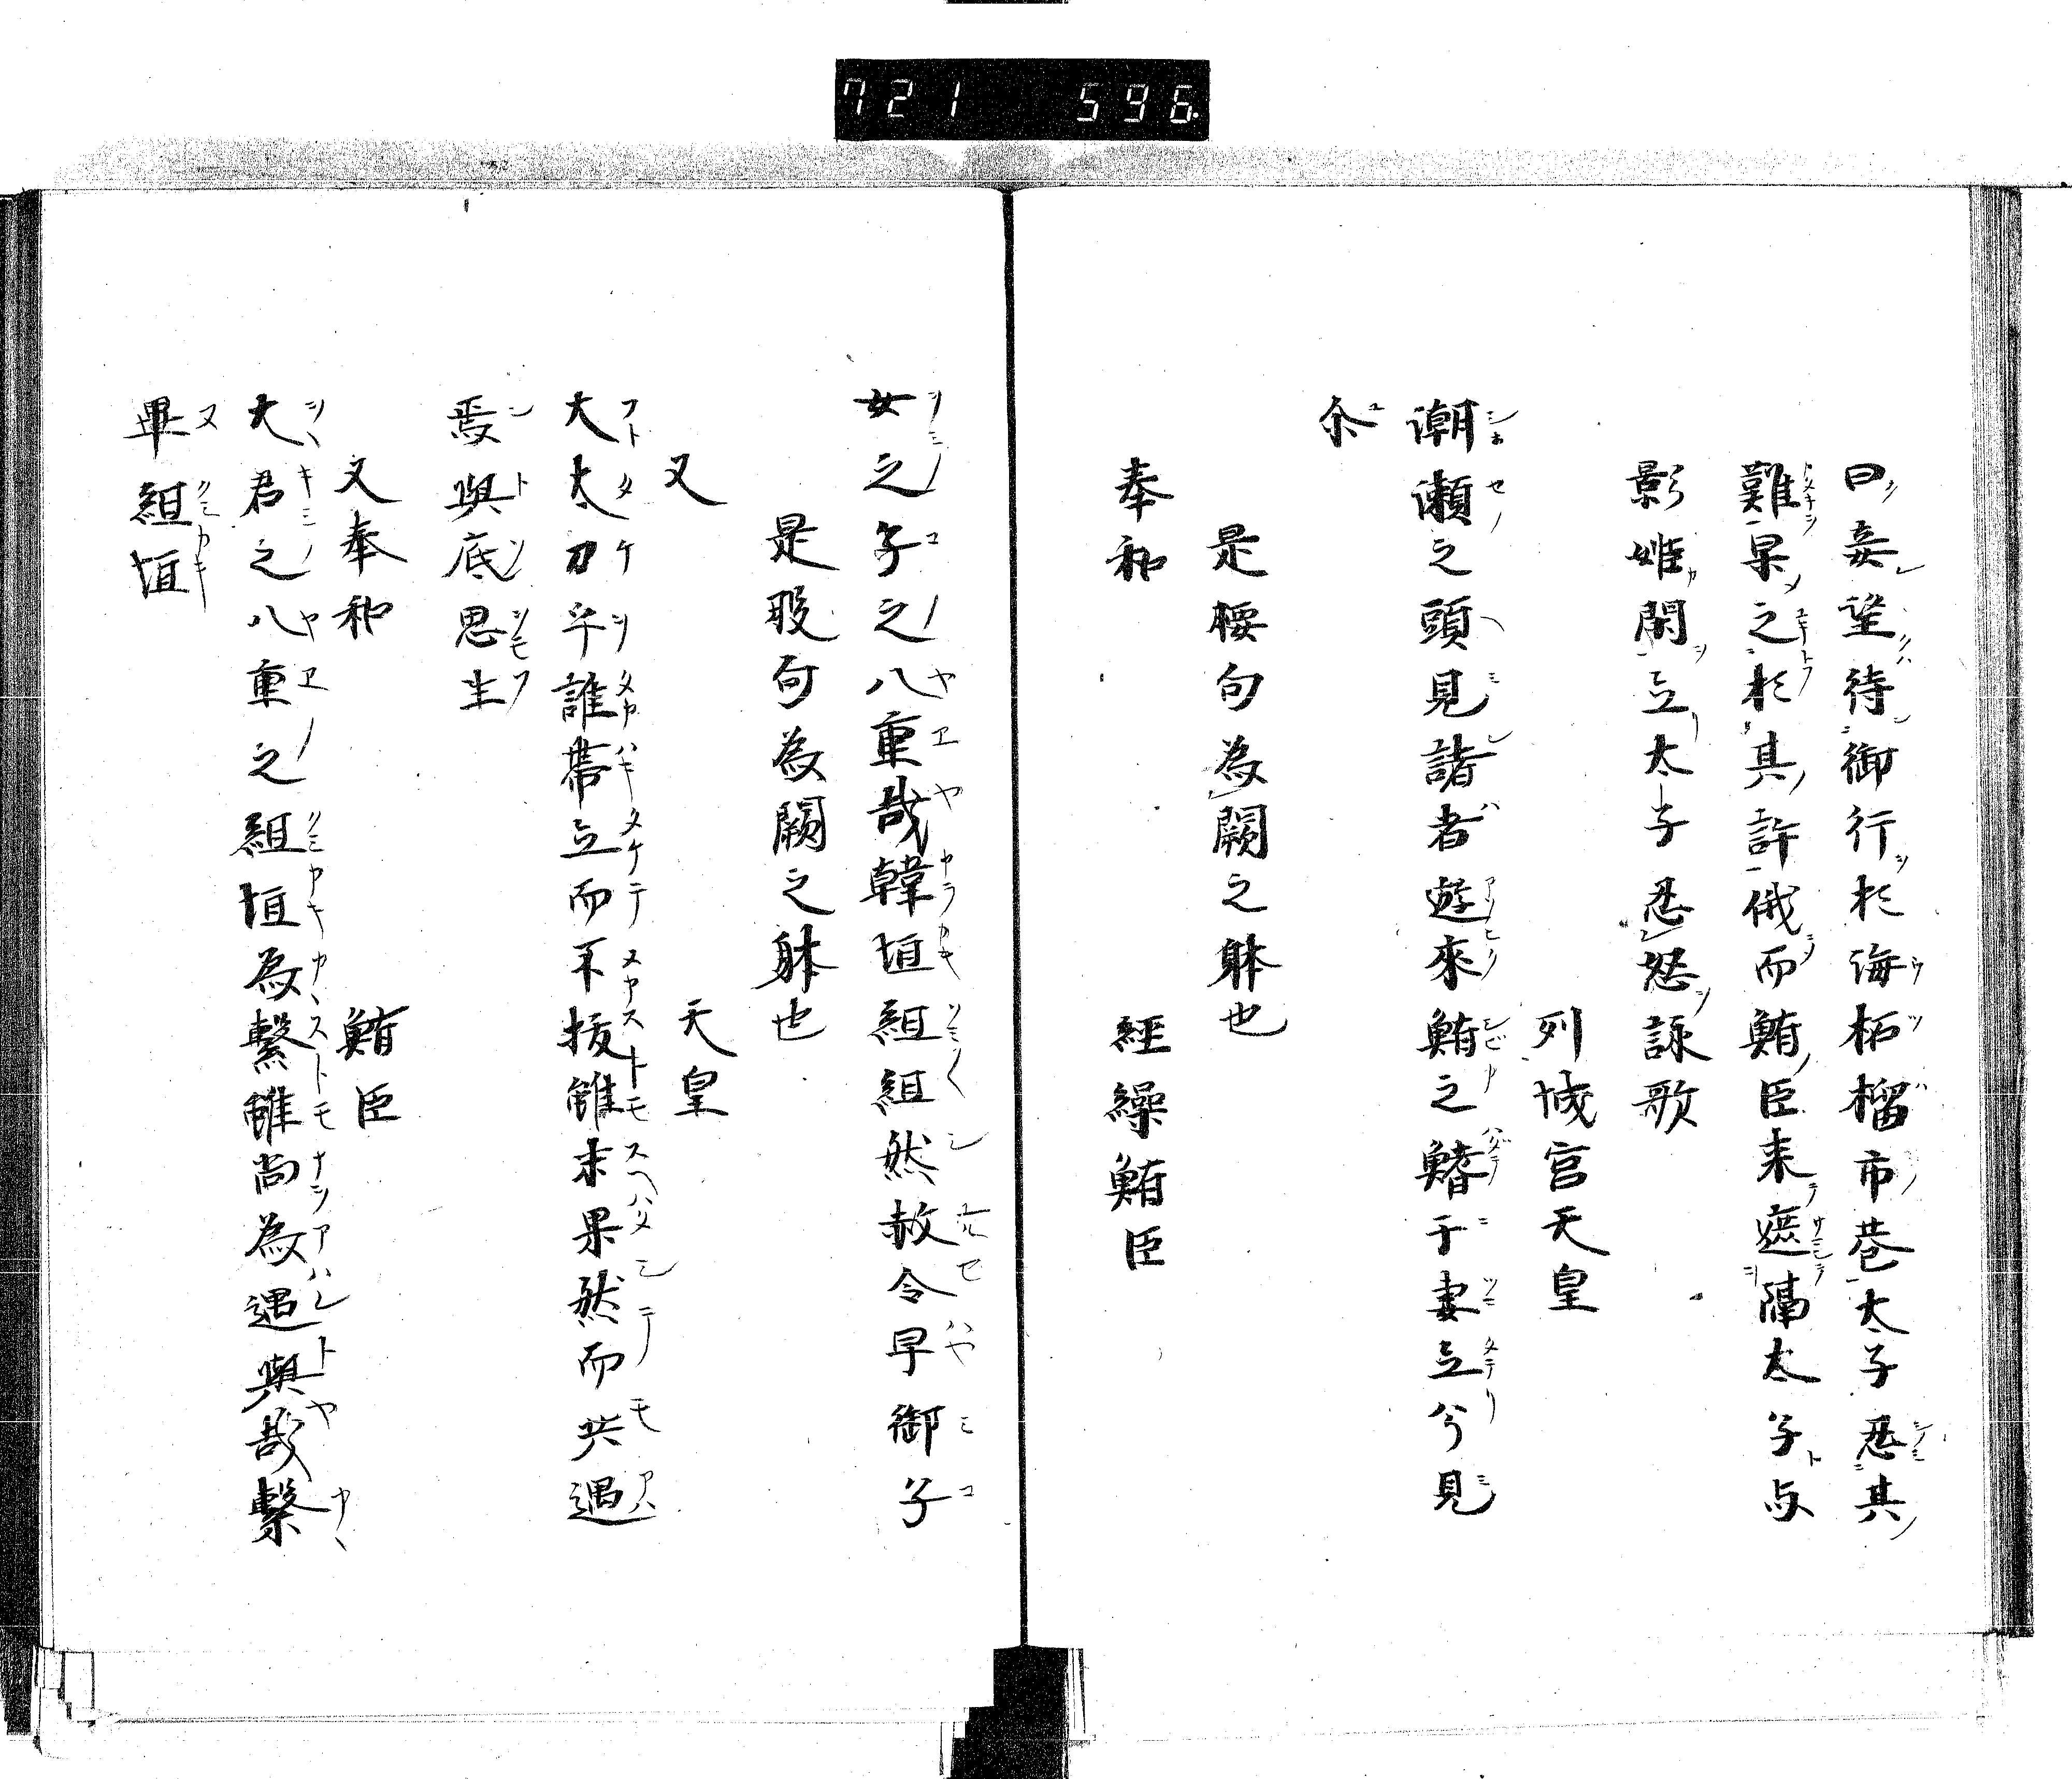 721 596.
曰妾望待御行於海柘榴市巷太子忍其
難果之於其許俄而鮪臣来遮隔太子与
影姫間立太子忍怒詠歌
列城宮天皇
潮瀬之頭見諸者遊來鮪之鰭于妻立兮見
尒
是腰句為闕之躰也
奉和 經繰鮪臣
女之子之八重哉韓垣組組然赦令早御子
是股句為闕之躰也
又 天皇
大太刀乎誰帯立而不抜雖末果然而共遇
焉與底思生
又奉和 鮪臣
大君之八重之組垣為繫雖尚為遇與哉繫
畢組垣